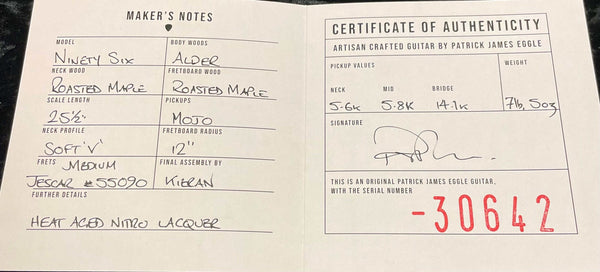 MAKER'S NOTES
MODEL
BODY WOODS
NINETY SIX
ALDER
NECK WOOD
FRETBOARD WOOD
ROASTED MAPLE
ROASTED MAPLE
SCALE LENGTH
PICKUPS
25½"
MOJO
NECK PROFILE
FRETBOARD RADIUS
SOFT 'V'
12"
FRETS
MEDIUM
FINAL ASSEMBLY BY
JESCAR #55090
KIERAN
FURTHER DETAILS
HEAT AGED NITRO LACQUER
CERTIFICATE OF AUTHENTICITY
ARTISAN CRAFTED GUITAR BY PATRICK JAMES EGGLE
PICKUP VALUES
WEIGHT
NECK
MID
BRIDGE
5.6K
5.8K
14.1K
7lb, 5oz
SIGNATURE
THIS IS AN ORIGINAL PATRICK JAMES EGGLE GUITAR,
WITH THE SERIAL NUMBER
-30642